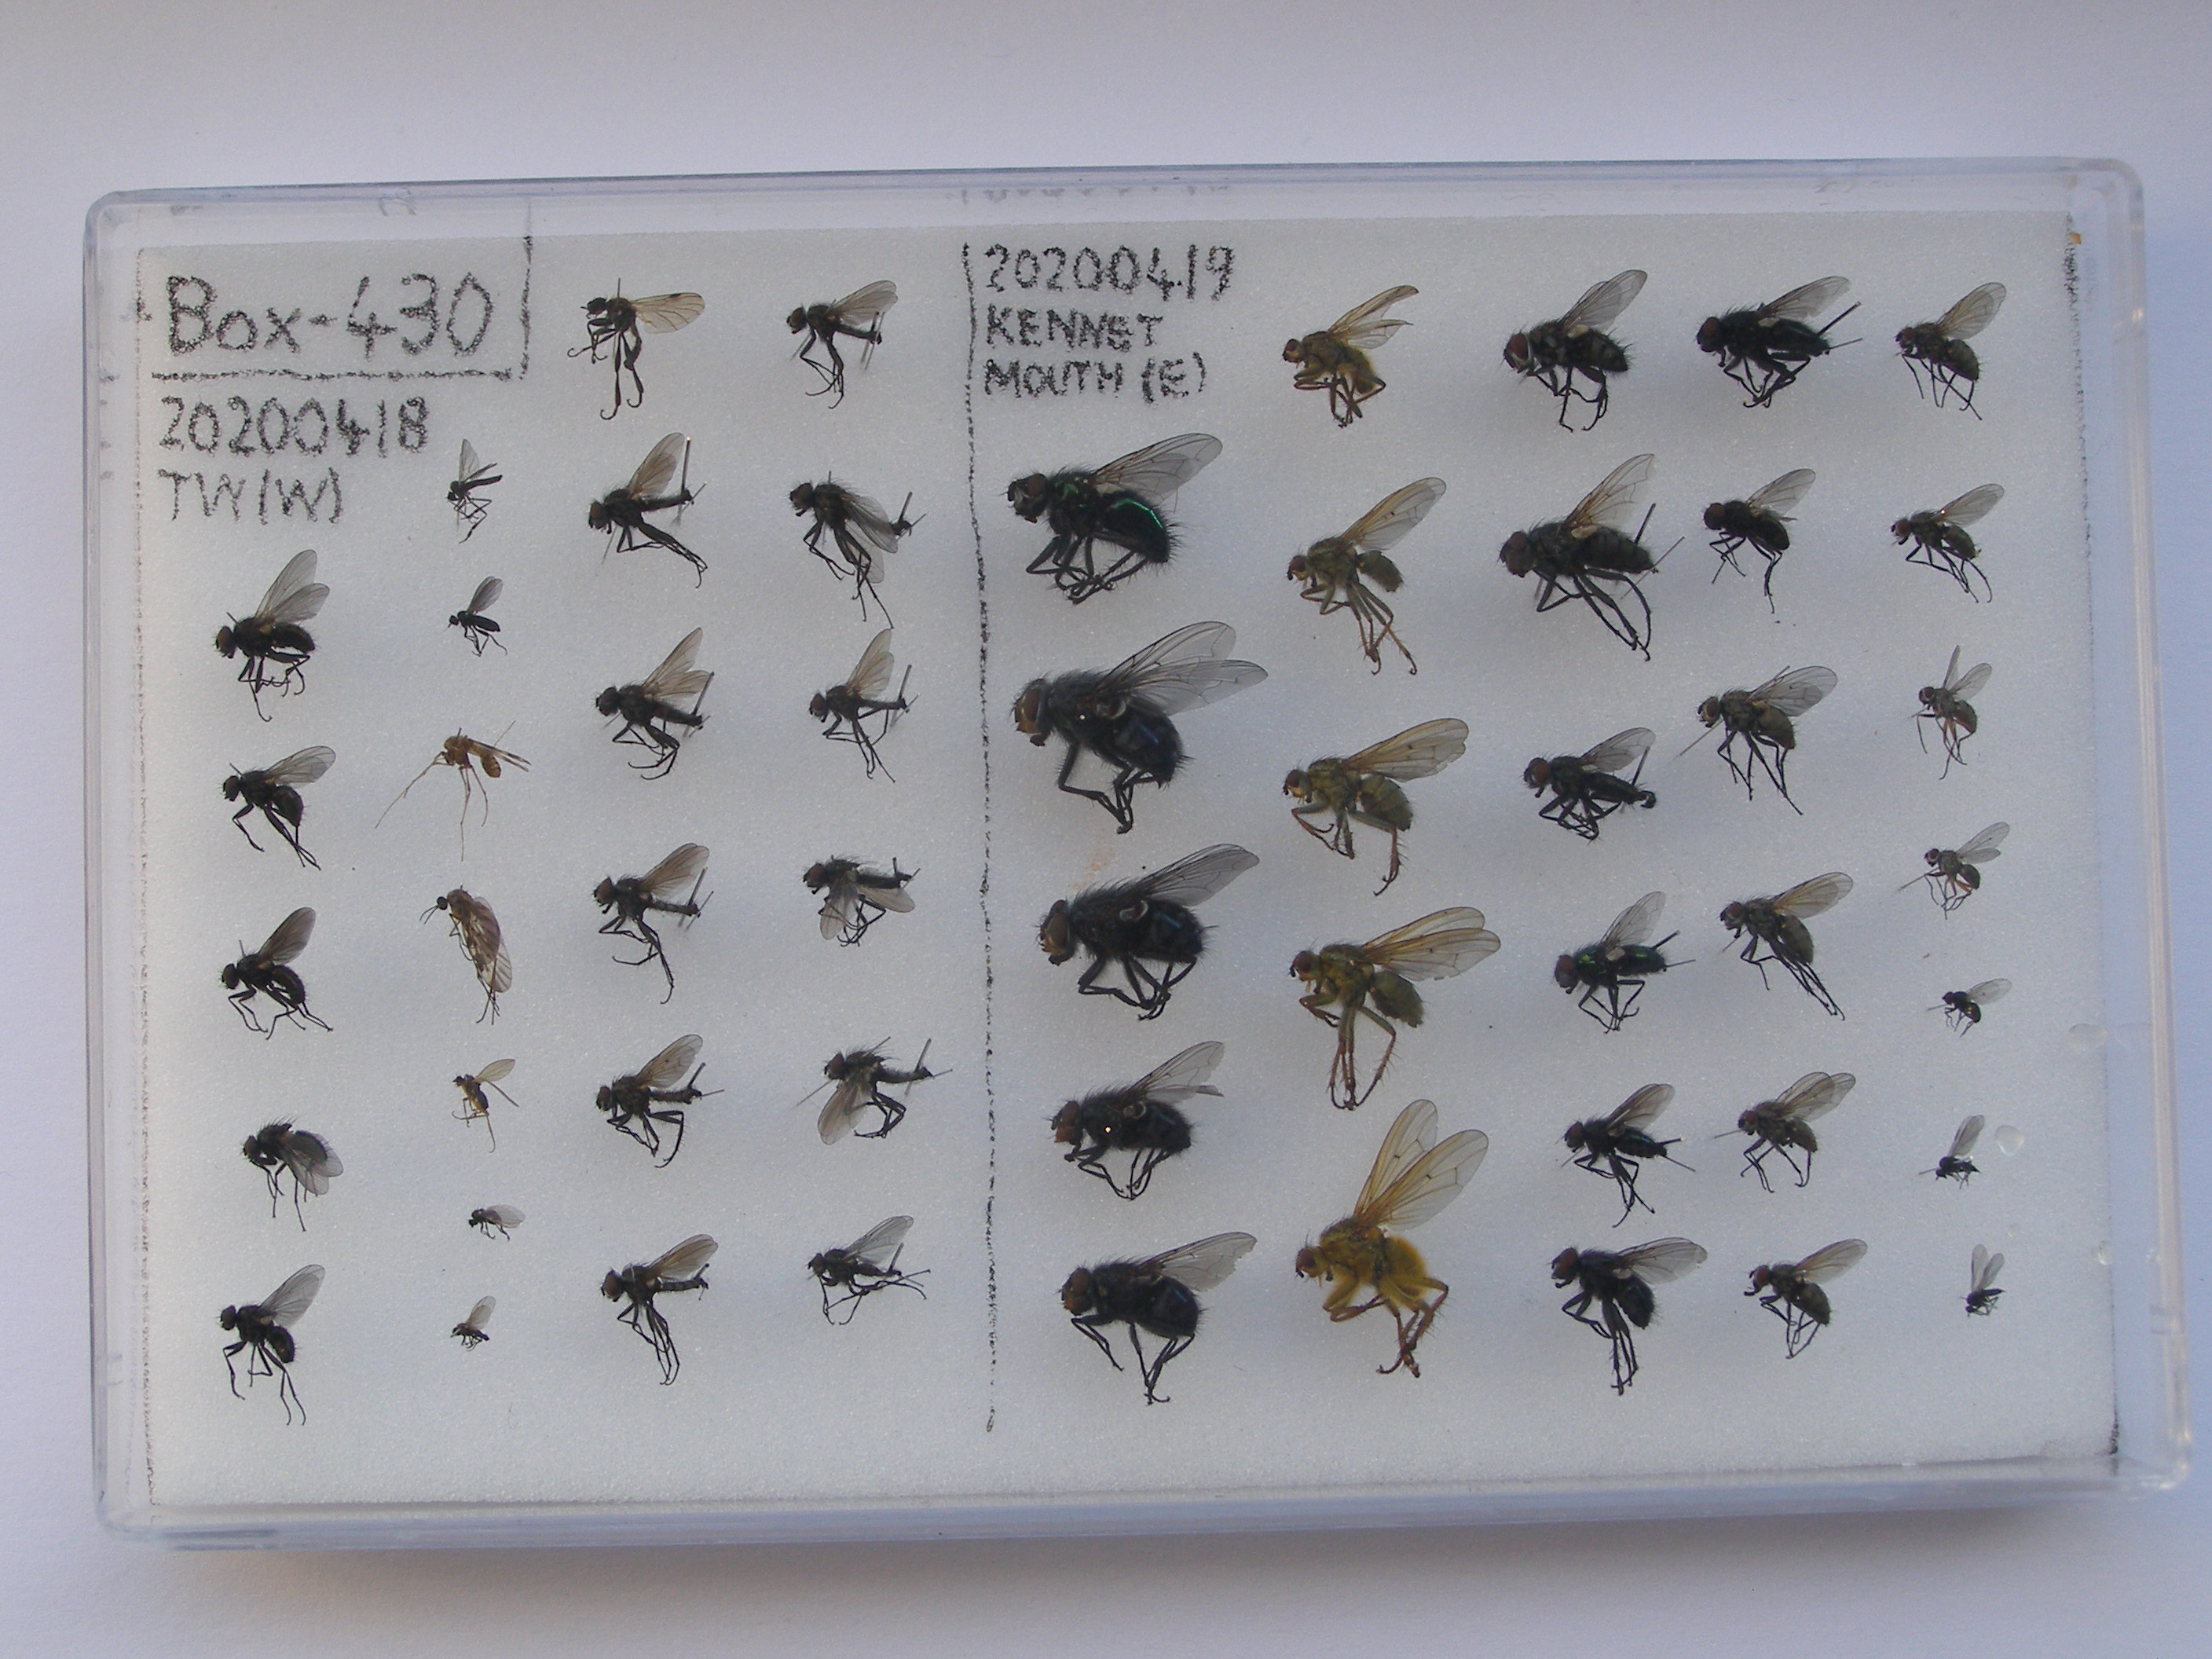 Box-430
20200418
TW(W)
20200419
KENNET
MOUTH (E)